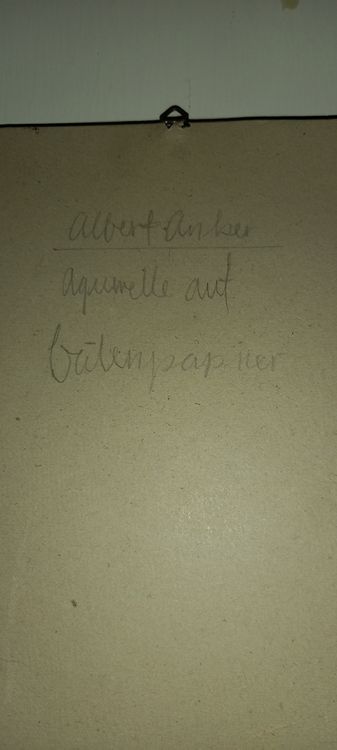 Albert Anker
aquarelle auf
Bütenpapier